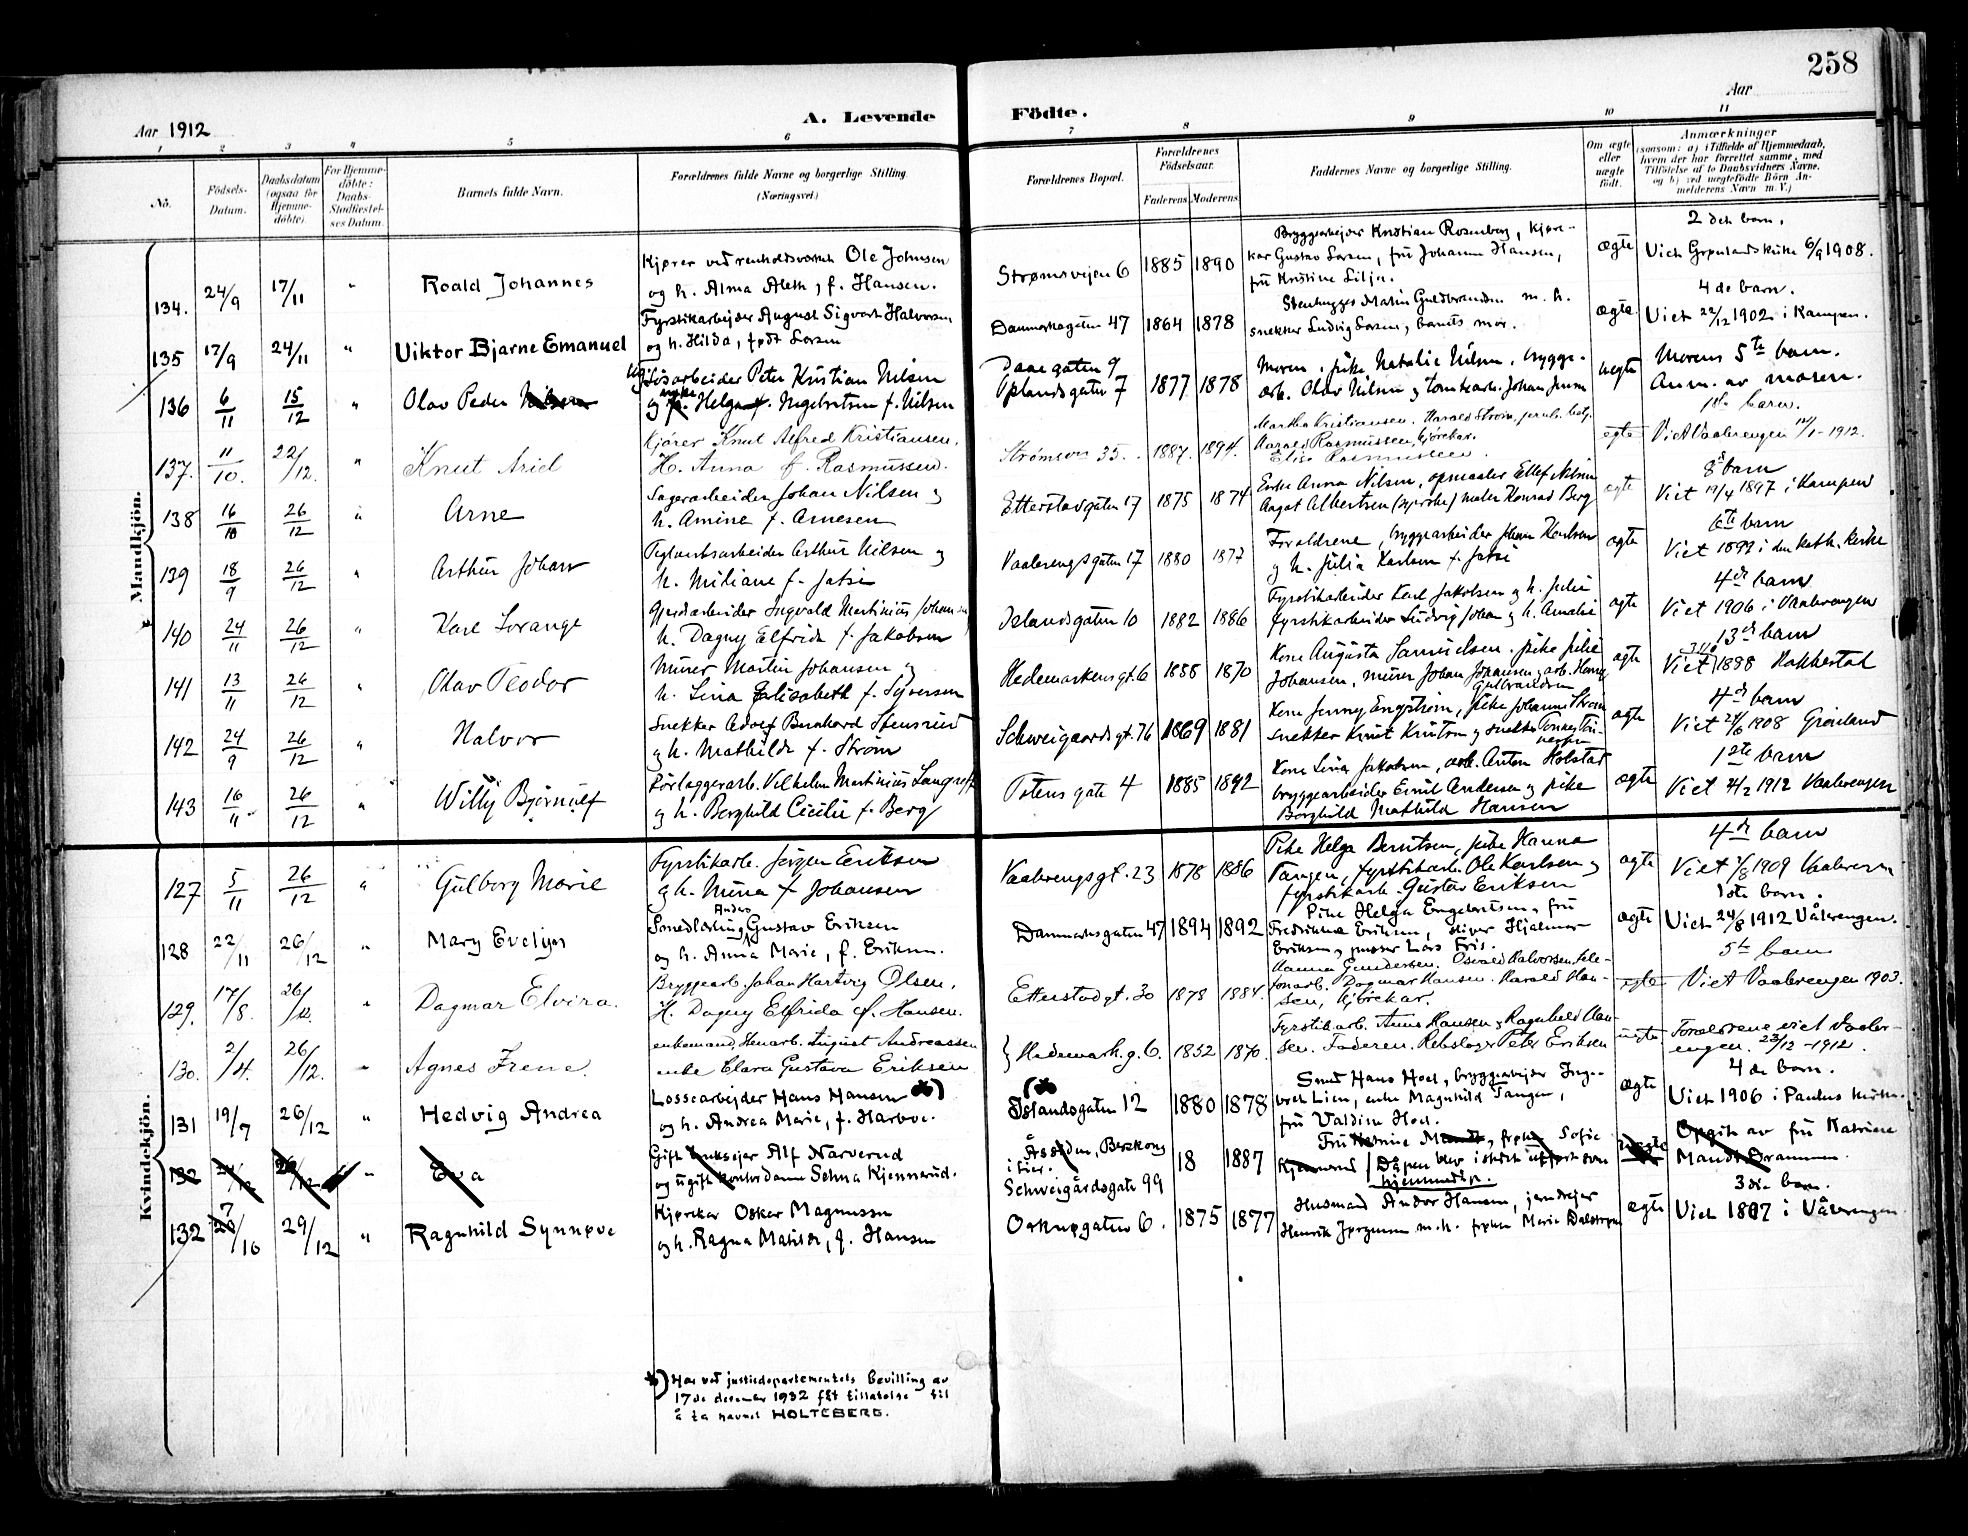 258
Aar 1912
A. Levende
Födte.
Aar
1 2 3 4 5 6 7 8 9 10 11
Nö.
Födsels-Datum.
Daabsdatum (ogsaa for Hjemme-döbte).
For Hjemme-döbte: Daabs-Stadfæstel-ses Datum.
Barnets fulde Navn.
Forældrenes fulde Navne og borgerlige Stilling. (Næringsvei.)
Forældrenes Bopæl.
Forældrenes Födselsaar.
Faderens Moderens
Faddernes Navne og borgerlige Stilling.
Om ægte eller uægte födt.
Anmærkninger
(saasom: a) i Tilfælde af Hjemmedaab, hvem der har forrettet samme, med Tilföielse af to Daabsvidners Navne, og b) ved uægtefödte Börn An-melderens Navn m. V.)
Mandkjön.
134. 24/9 17/11 " Roald Johannes
Kjører ved renholdsvæsnet Ole Johnsen
og h. Alma Aleth, f. Hansen.
Strømsvejen 6 1885 1890
Bryggearbejder Kristian Rosenberg, kjøre-
kar Gustav Larsen, fru Johanne Hansen,
fru Kristine Silju.
ægte
2 det barn.
Viet Grønlands kirke 6/9 1908.
135 17/9 24/11 " Viktor Bjarne Emanuel
Fyrstikarbejder August Sigvart Halvorsen
og h. Hilda, født Larsen
Danmarksgaten 47 1864 1878
Stenhugger Martin Guldbrandsen m. h.
snekker Ludvig Larsen, barnets mor.
ægte
4 de barn.
Viet 22/12 1902 i Kampen.
136 6/11 15/12 " Olav Peder Nilsen
Løsarbeider Peter Kristian Nilsen
og pike Helga f. Ingebretsen f. Nilsen
Daaegaten 9
Oplandsgaten 7 1877 1878
Moren, pike Natalie Nilsen, brygge-
arb. Olav Nilsen og tomtearb. Johan Jensen
uegte
Morens 5te barn.
Anm. av moren.
137. 11/10. 22/12. " Knut Ariel
Kjører Knut Alfred Kristiansen.
H. Anna f. Rasmussen.
Strømsvn 35. 1887. 1894.
Martha Kristiansen. Harald Strøm, jernb. betj.
Harald Rasmussen, kjørekar.
Elise Rasmussen.
egte
1ste barn.
Viet Vaalerengen 14/1-1912.
138 16/10 26/12 " Arne
Sagarbeider Johan Nilsen og
h. Amine f. Arnesen
Etterstadgaten 17 1875 1874
Enke Anna Nilsen, opmaaler Ellef Nilsen
Aagot Albertsen (syerske) maler Konrad Berg
egte
8de barn
Viet 19/4 1897 i Kampen
139 18/9 26/12 " Arthur Johan
Teglverksarbeider Arthur Nilsen og
h. Miliane f. Jatsi
Vaalerengsgaten 17 1880 1877
Forældrene, bryggearbeider Johan Karlsen
og h. Julia Karlsen f. Jatsi
ægte
6te barn
Viet 1899 i den kath. kirke
140 24/11 26/12 " Karl Lorange
Gjerdarbeider Ingvald Martinius Johansen
h. Dagny Elfrida f. Jakobsen
Islandsgaten 10 1882 1886
Fyrstikarbeider Karl Jakobsen og h. Julie
fyrstikarbeider Ludvig Johan og h. Amalie
ægte
4de barn
Viet 1906 i Vaalerengen
141 13/11 26/12 " Olav Teodor
Murer Martin Johansen og
h. Lina Elisabeth f. Syversen
Hedemarkensgt. 6 1888 1870
Kone Augusta Samuelsen, pike Julie
Johansen, murer Johan Johansen, arb. Henry
Gulbrandsen
ægte
13de barn
Viet 31/10 1898 Hakkestad
142 24/9 26/12 " Halvor
Snekker Adolf Bernhard Stensrud
og h. Mathilde f. Strøm
Schweigaardsgt. 76 1869 1881
Kone Jenny Engstrøm, pike Johanne Strøm
snekker Knut Knutsen og snekker
ægte
4de barn
Viet 1908 Grønland
143 16/11 26/12 " Willy Bjørnulf
Forlæggerarb. Vilhelm Martinius Langseth
og h. Borghild Cecilie f. Berg
Totens gate 4 1885 1892
Kone Lina Jakobsen, arb. Anton Holstad
bryggearbeider Emil Andersen og pike
Borghild Mathilde Hansen
ægte
1ste barn
Viet 24/2 1912 Vaalerengen
Kvindekjön.
127 5/11 26/12 " Gulborg Marie
Fyrstikarb. Jørgen Eriksen
og h. Mina f. Johansen
Vaalerengsgt. 23 1878 1886
Pike Helga Berntsen, pike Hanna
Tangen, fyrstikarb. Ole Karlsen og
fyrstikarb. Gustav Eriksen
ægte
4de barn
Viet 1/8 1909 Vaalereng.
128 22/11 26/12 " Mary Evelyn
Anders
Sønedlærling Gustav Eriksen
og h. Anna Marie, f. Eriksen.
Danmarksgaten 47 1894 1892
Pike Helga Engebretsen, fru
Fredrikke Eriksen, sliper Hjalmar
Eriksen, pusser Lars Friis.
ægte
1ste barn.
Viet 24/8 1912 Vålerengen.
129. 17/8. 26/12. " Dagmar Elvira.
Bryggearb. Johan Hartvig Olsen.
H. Dagny Elfrida f. Hansen.
Etterstadgt. 30 1878 1884.
Hanna Gundersen. Osvald Halvorsen, tele-
fonarb. Dagmar Hansen. Harald Han-
sen, kjørekar.
egte
5te barn
Viet Vaalerengen 1903.
130. 2/4. 26/12. " Agnes Irene.
enkemand, Stenarb. August Andreassen
enke Clara Gustava Eriksen
Hedemark. g. 6. 1852 1870.
Fyrstikarb. Anna Hansen, Ragnhild Han-
sen. Faderen. Rebslager Peter Eriksen
uegte
Forældrene viet Vaaler-
engen. 23/12-1912.
131 19/7 26/12 " Hedvig Andrea
Lossearbejder Hans Hansen *)
og h. Andrea Marie, f. Harboe.
(*
Islandsgaten 12 1880 1878
Smed Hans Hoel, bryggearbejder Inge-
bret Lien, enke Magnhild Tangen,
fru Valdine Hoel.
ægte
4 de barn.
Viet 1906 i Paulus kirke.
132 24/12 26/12 " Eva
Gift bruksejer Alf Narverud
og ugift kontordame Selma Kjennerud.
Åssiden, Buskerud
i lier.
Schweigårdsgate 99
18 1887
Fru Katrine Mandt, frøken Sofie
Kjennerud / Dåpen blev iskedt utført som
hjemmedåp.
uægte
Opgit av fru Katrine
Mandt Drammen.
132 7/10 29/12 " Ragnhild Synnøve
Kjørekar Oskar Magnussen
og h. Ragna Matilde, f. Hansen
Orknøgaten 6. 1875 1877
Husmand Andor Hansen, jerndrejer
Henrik Jørgensen m. h. frøken Marie Dalstrøm
ægte
3die barn.
Viet 1897 i Vålerengen.
*) Har ved justisdepartementets bevilling av
17de desember 1932 fåt tillatelse til
å ta navnet HOLTEBERG.